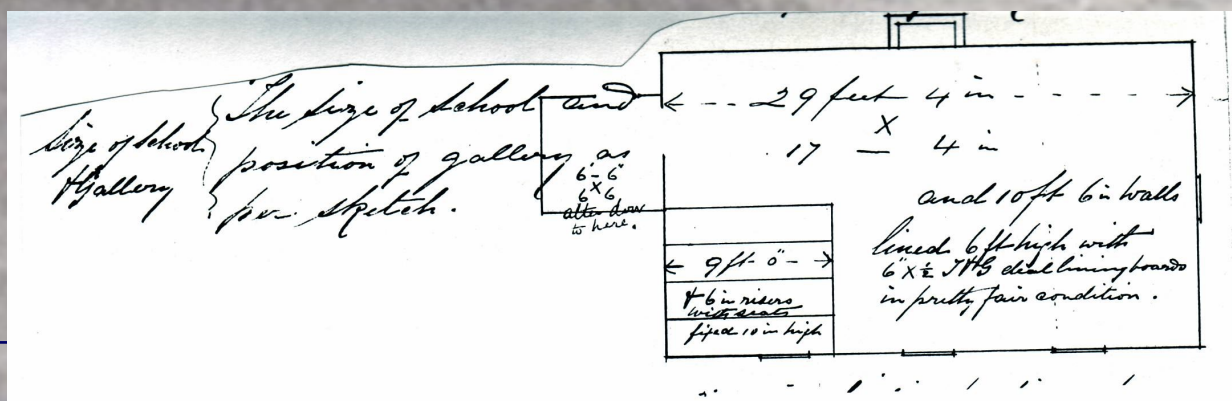 Size of School
& Gallery
The size of school and
position of gallery as
per sketch.
6-6"
X
6 6
alter door
to here.
29 feet 4 in
X
17 — 4 in
and 10 ft 6 in walls
lined 6 ft high with
6" X ½ T & G deal lining boards
in pretty fair condition.
9 ft - 0"
& 6 in risers
with seats
fixed 10 in high